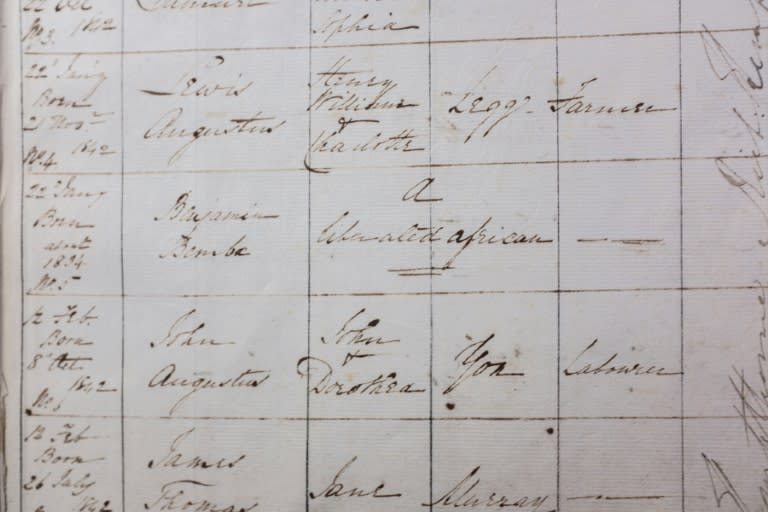 No. 3. 1842
Sophia
22d Jany
Born
21 Novr
No. 4 1842
Lewis
Augustus
Henry
William
&
Charlotte
Legg
Farmer
22d Jany
Born
about
1834
No. 5
Benjamin
Bembe
A
liberated african
12 Feb.
Born
8 Oct
1842
John
Augustus
John
&
Dorothea
Yon
Labourer
12 Feb
Born
26 July
1842
James
Thomas
Jane
Murray